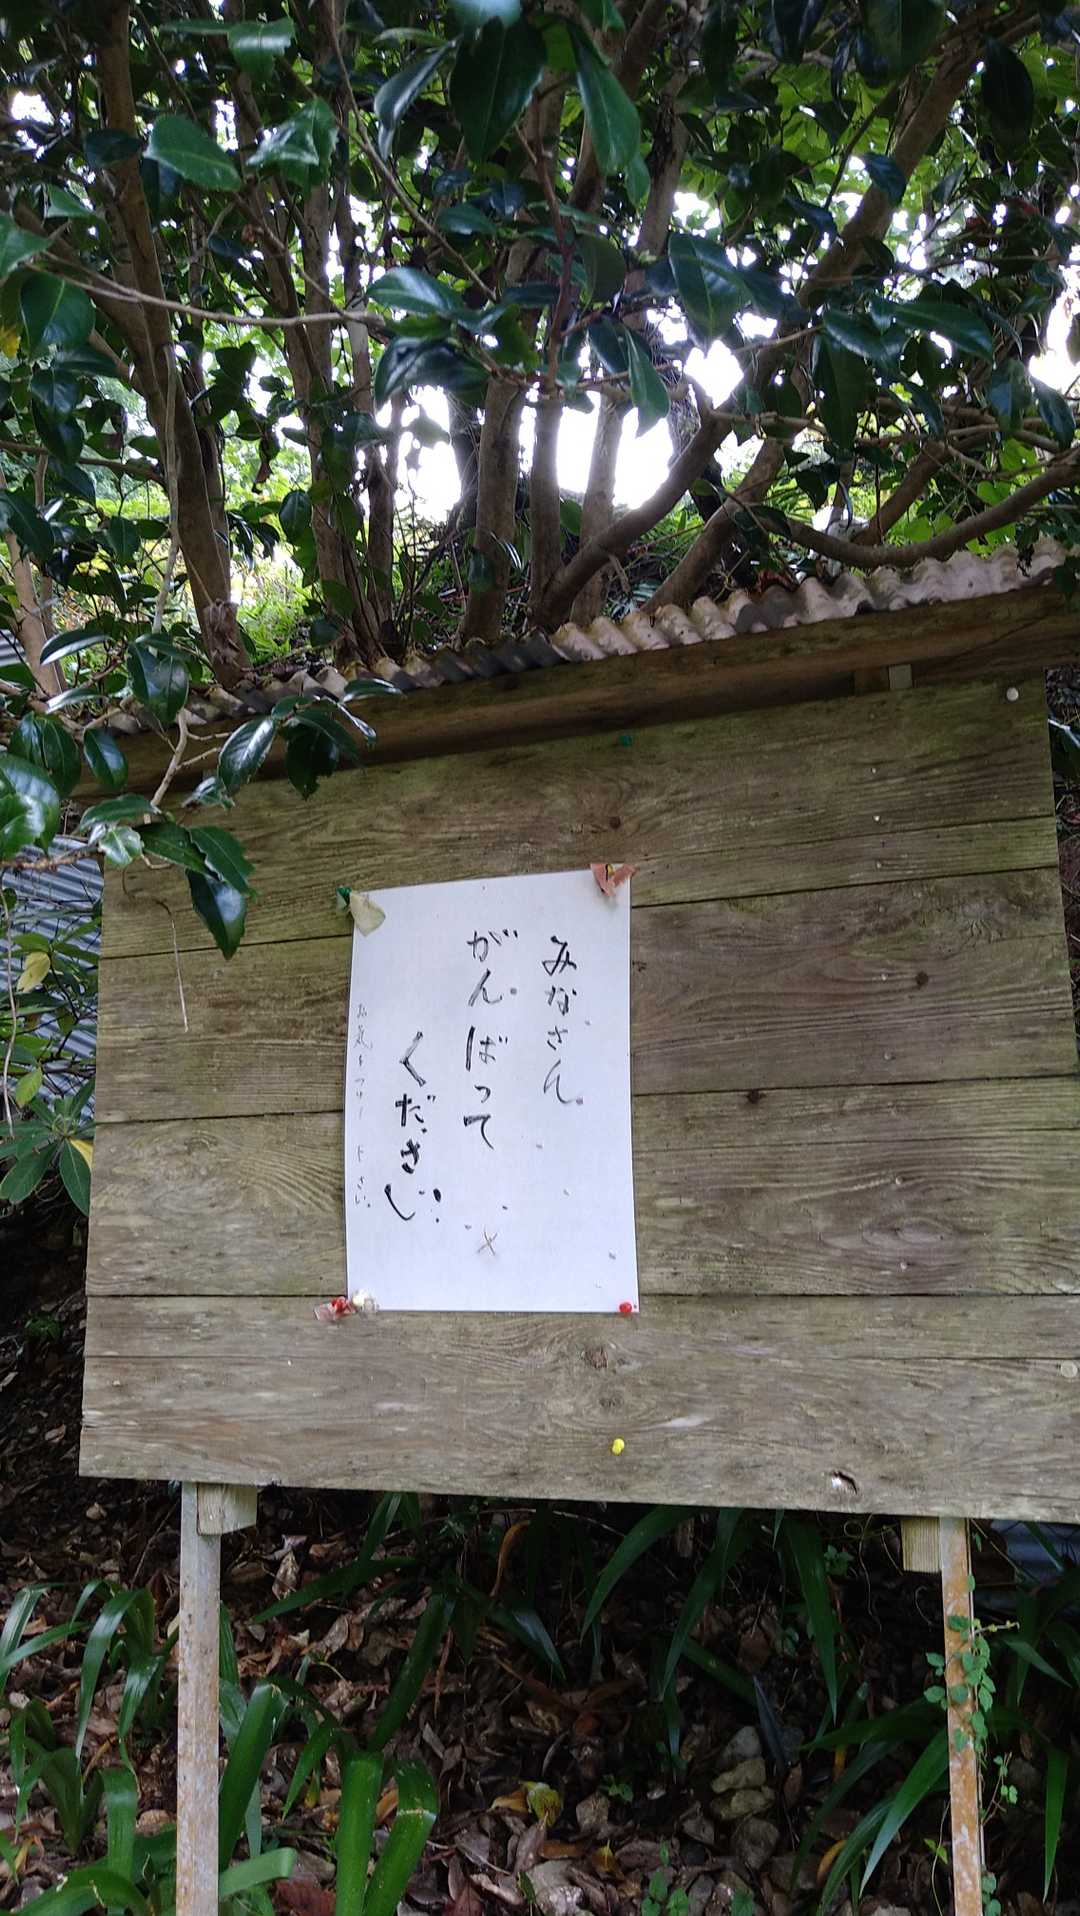 みなさん
がんばって
ください
お気をつけ下さい